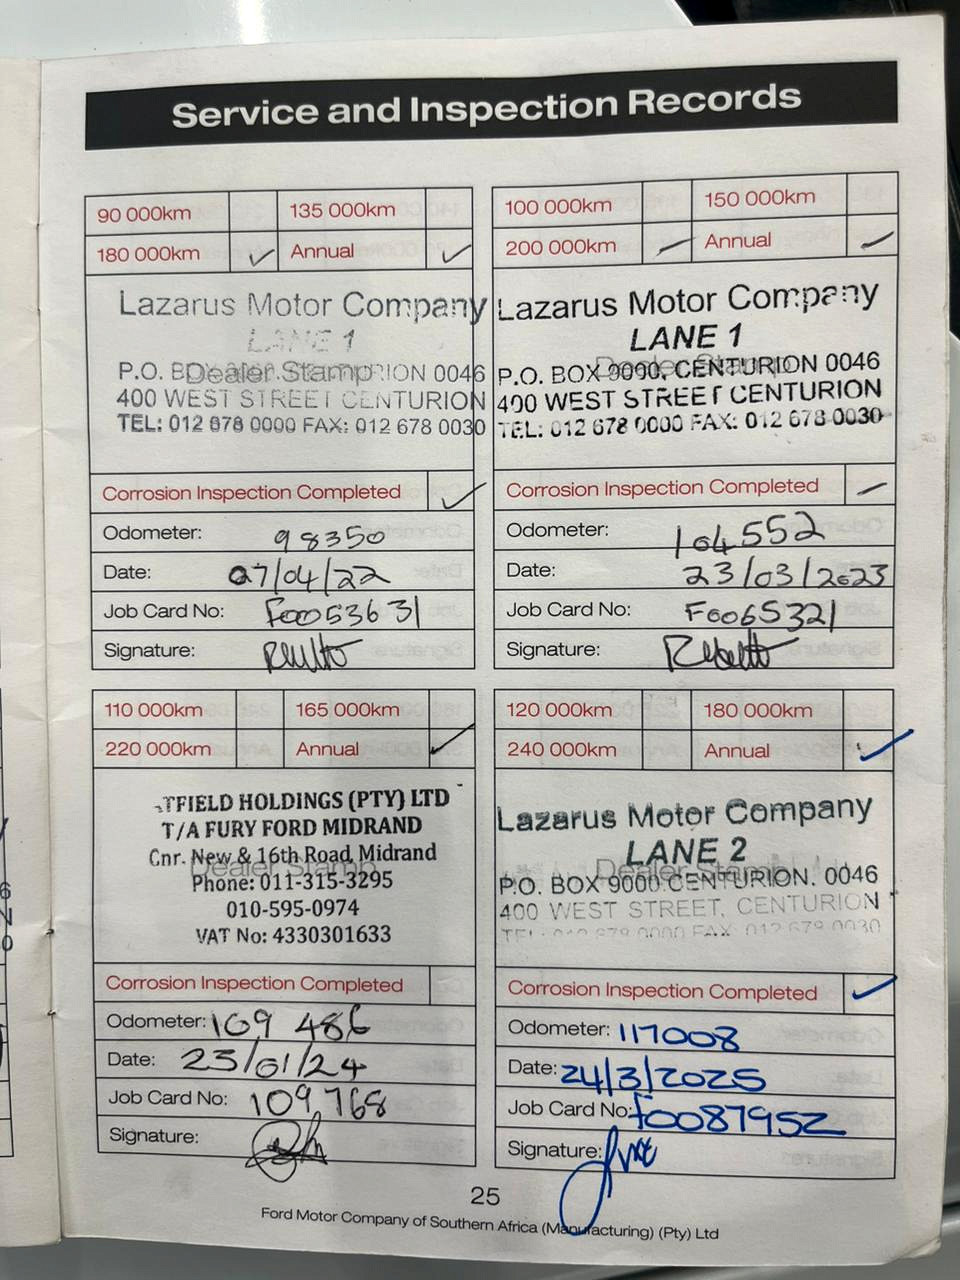 Service and Inspection Records
90 000km 135 000km
180 000km Annual
Lazarus Motor Company
LANE 1
Dealer Stamp
P.O. BOX CENTURION 0046
400 WEST STREET CENTURION
TEL: 012 678 0000 FAX: 012 678 0030
Corrosion Inspection Completed
Odometer: 98350
Date: 07/04/22
Job Card No: F0053631
Signature:
100 000km 150 000km
200 000km Annual
Lazarus Motor Company
LANE 1
Dealer Stamp
P.O. BOX 9090, CENTURION 0046
400 WEST STREET CENTURION
TEL: 012 678 0000 FAX: 012 678 0030
Corrosion Inspection Completed
Odometer: 104552
Date: 23/03/2023
Job Card No: F0065321
Signature:
110 000km 165 000km
220 000km Annual
TFIELD HOLDINGS (PTY) LTD
T/A FURY FORD MIDRAND
Cnr. New & 16th Road, Midrand
Dealer Stamp
Phone: 011-315-3295
010-595-0974
VAT No: 4330301633
Corrosion Inspection Completed
Odometer: 109 486
Date: 23/01/24
Job Card No: 109768
Signature:
120 000km 180 000km
240 000km Annual
Lazarus Motor Company
LANE 2
Dealer Stamp
P.O. BOX 9000 CENTURION. 0046
400 WEST STREET, CENTURION
TEL: 012 678 0000 FAX: 012 678 0030
Corrosion Inspection Completed
Odometer: 117008
Date: 24/3/2025
Job Card No: F0087952
Signature:
25
Ford Motor Company of Southern Africa (Manufacturing) (Pty) Ltd